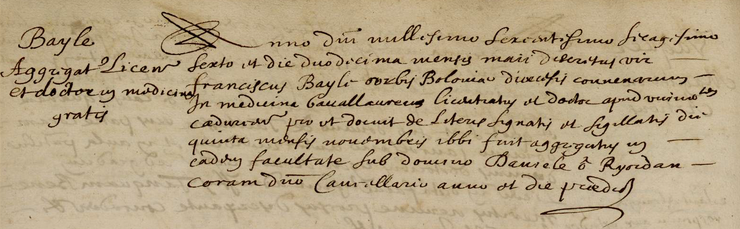 Bayle
Aggregat9 Licen
et doctor in medicina
gratis
Anno dnī millesimo sexcentissimo sexagesimo
sexto et die duodecima mensis maii discretus vir
franciscus Bayle orbis Bolonia diœcesis convenarum
In medicina baccallaureus licentiatus et doctor apud
pro et docuit de Literis signatis et sigillatis die
quinta mensis novembris ibbi fuit aggregatus in
eadem facultate sub domino Dausele
Coram dnō Cancellario anno et die